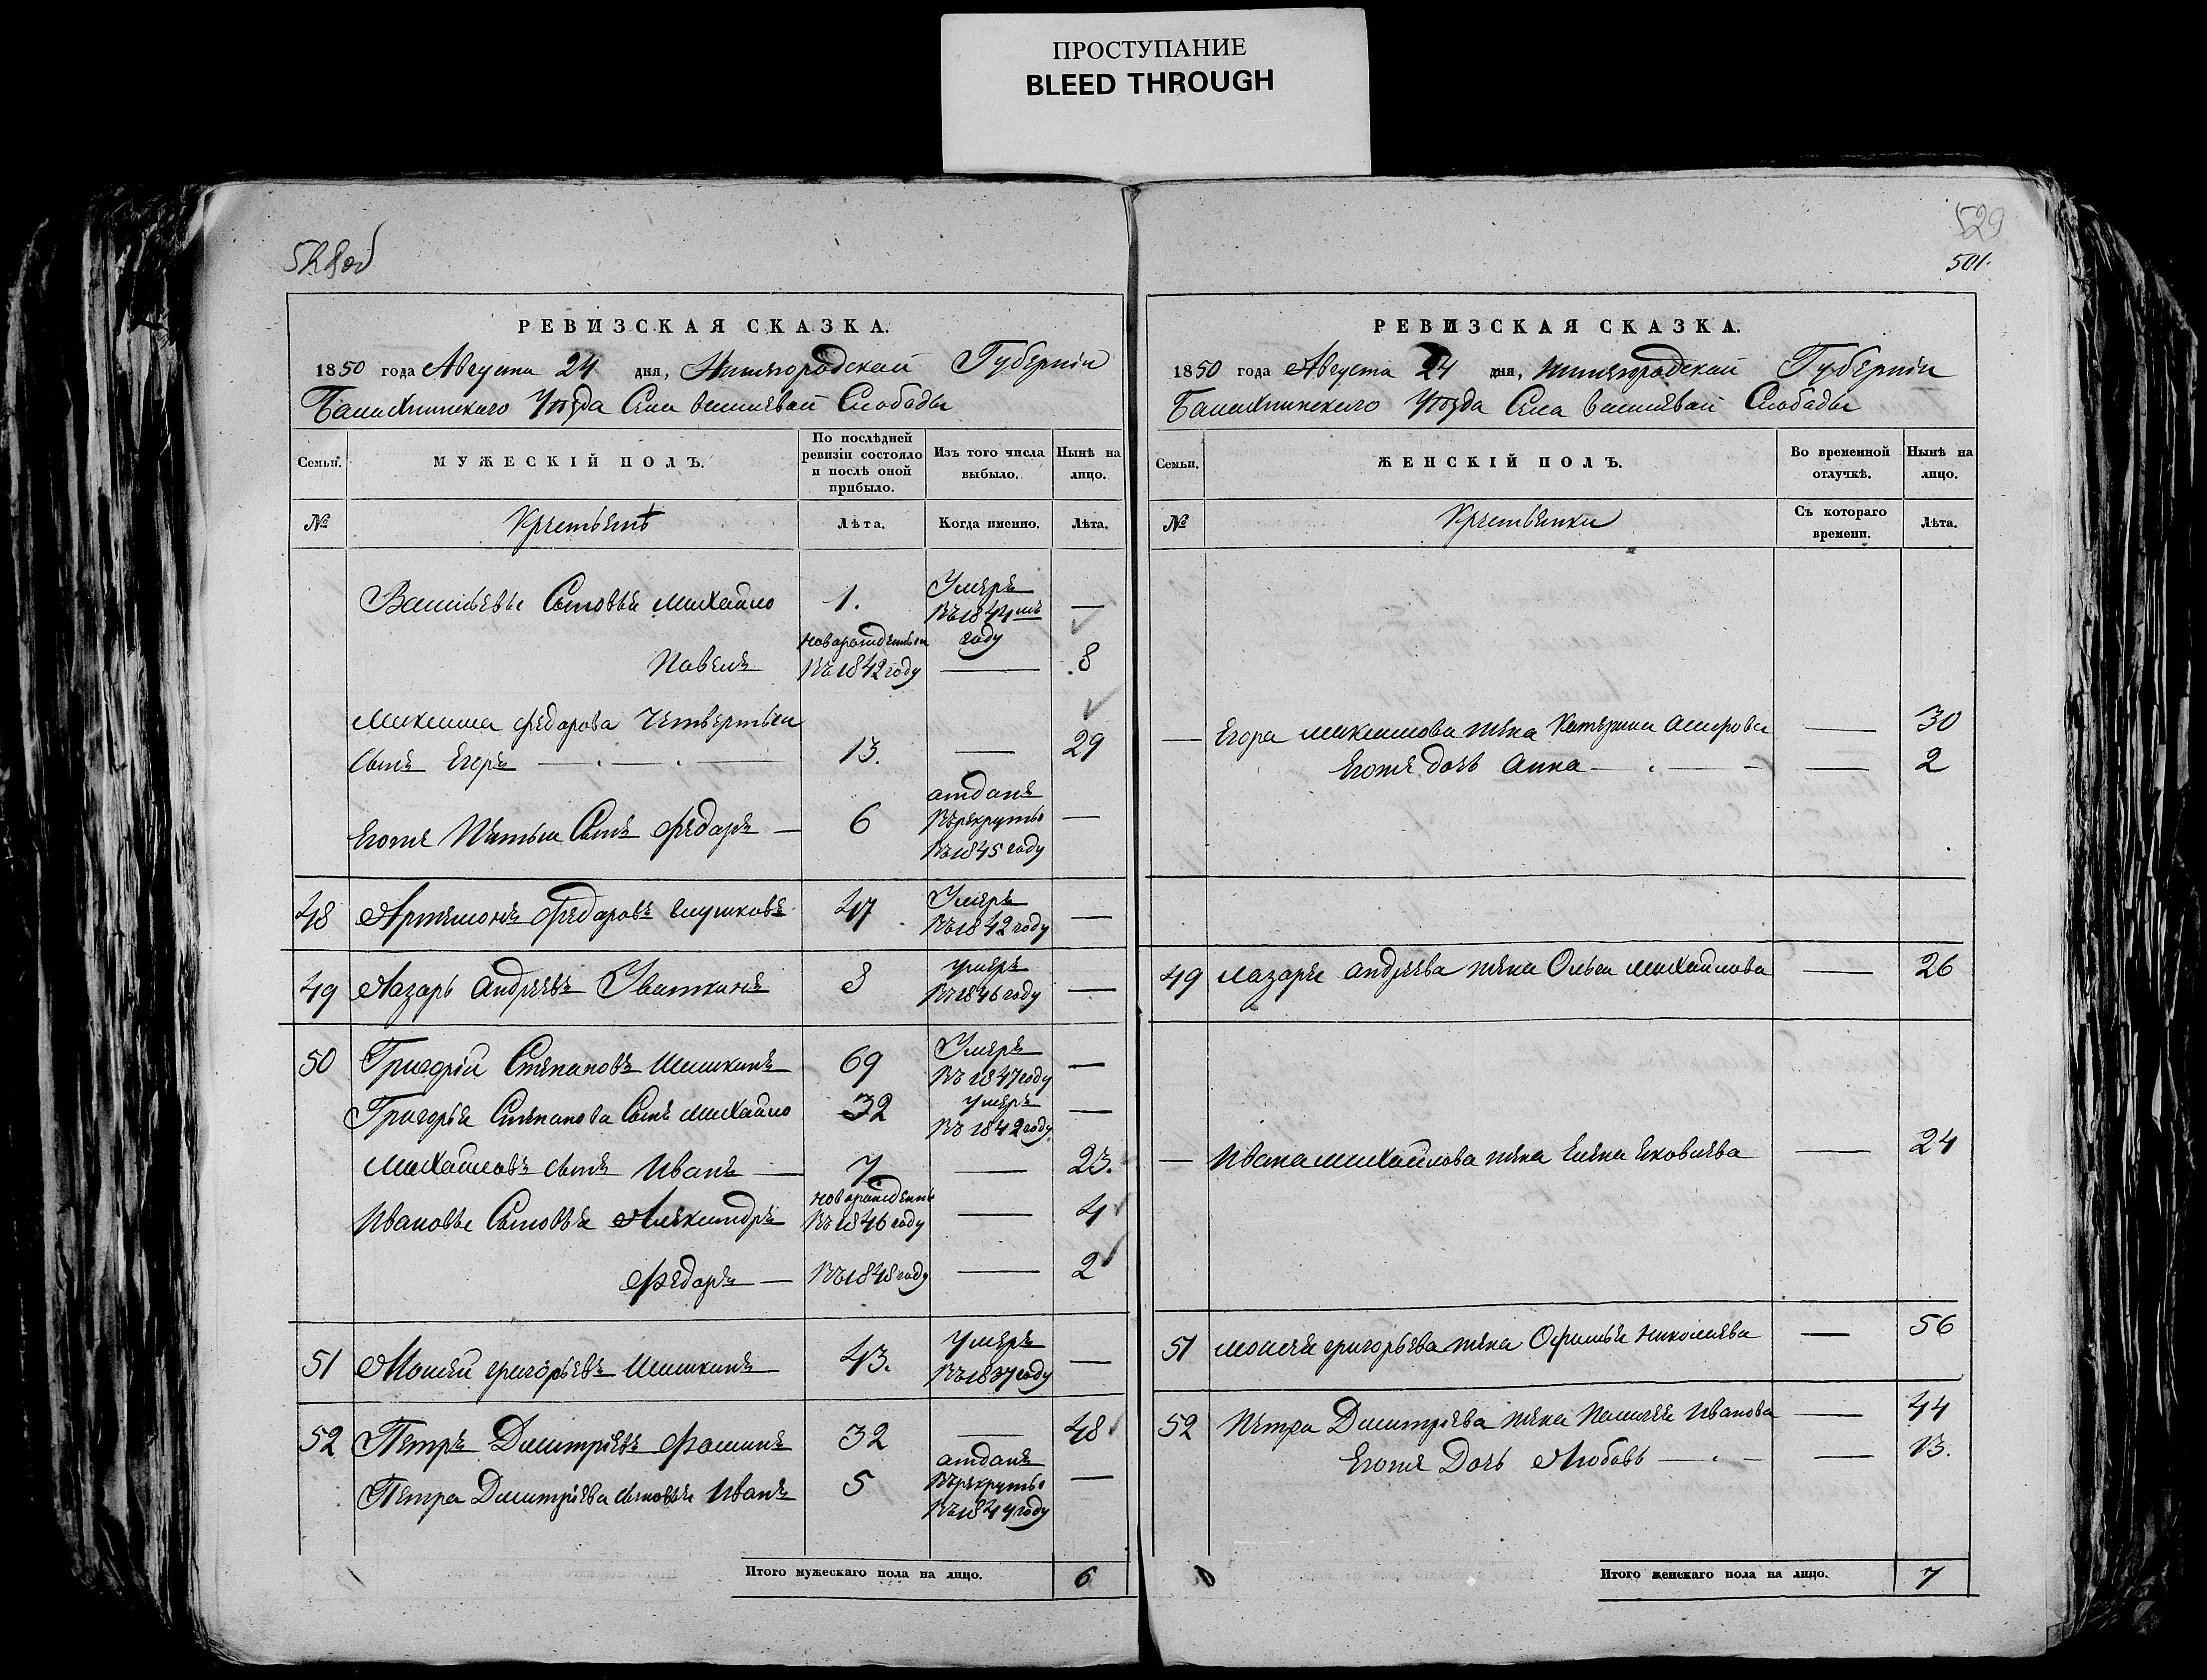 ПРОСТУПАНИЕ
BLEED THROUGH
528об
РЕВИЗСКАЯ СКАЗКА.
1850 года Августа 24 дня, Нижегородской Губерніи
Балахнинского Уѣзда Села василевай Слобады
Семьи. МУЖЕСКІЙ ПОЛЪ. По послѣдней ревизіи состояло и послѣ оной прибыло. Изъ того числа выбыло. Нынѣ на лицо.
№ Крестьянъ Лѣта. Когда именно. Лѣта.
Васильевы Сыновья михайло 1. Умеръ въ 1844мъ году —
Павелъ новарожденыи въ 1842 году — 8
Максима федарова Четвертыи
сынъ Егоръ — 13. — 29
Егоже Пятыи Сынъ федаръ — 6 атданъ Върекруты въ 1845 году —
48 Артемонъ федаровъ 47 Умеръ въ 1842 году —
49 Лазарь андреевъ Ивашкинъ 8 умеръ въ 1846 году —
50 Григорiй Степановъ Шишкинъ 69 Умеръ въ 1847 году —
Григорья Степанова Сынъ михайло 32 умеръ въ 1842 году —
Михайловъ сынъ Иванъ — 7 — 23.
Ивановы Сыновья Александръ новарожденны въ 1846 году — 4
федаръ — въ 1848 году — 2
51 Моисеи григорьевъ Шишкинъ 43. Умеръ въ 1837 году —
52 Петръ Дмитріевъ фоминъ 32 — 48
Петра Дмитріева сыновья Иванъ 5 атданъ Върекруты въ 1844 году —
Итого мужескаго пола на лицо. 6
529
501.
РЕВИЗСКАЯ СКАЗКА.
1850 года Августа 24 дня, нижегородской Губерніи
Балахнинскаго Уѣзда Села василевай Слобады
Семьи. ЖЕНСКІЙ ПОЛЪ. Во временной отлучкѣ. Нынѣ на лицо.
№ Крестьянки Съ котораго времени. Лѣта.
— Егора максимова жена Катерина — 30
Егоже дочь Анна — — 2
49 Лазаря андреева жена Ольга михайлова — 26
— Ивана михайлова жена Елена Яковлева — 24
51 моисея григорьева жена Офимья николаева — 56
52 Петра Дмитріева жена Пелагея Иванова — 44
Егоже Дочь Любовь — — 13.
Итого женскаго пола на лицо. 7